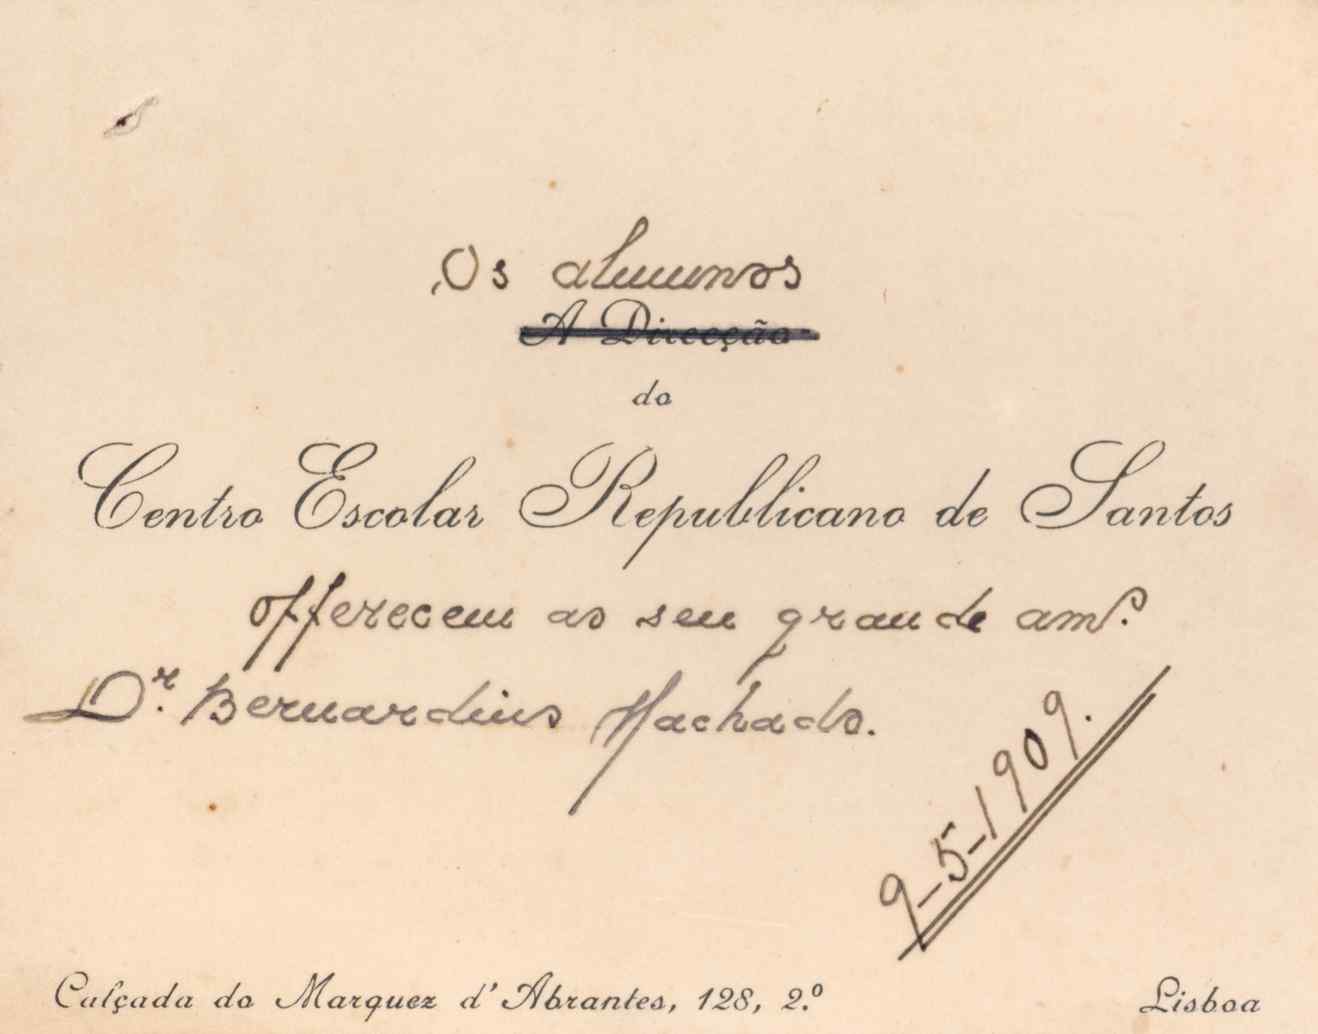 Os alumnos
A Direcção
do
Centro Escolar Republicano de Santos
offerecem ao seu grande amº.
Dr. Bernardino Machado.
9-5-1909.
Calçada do Marquez d'Abrantes, 128, 2.º
Lisboa